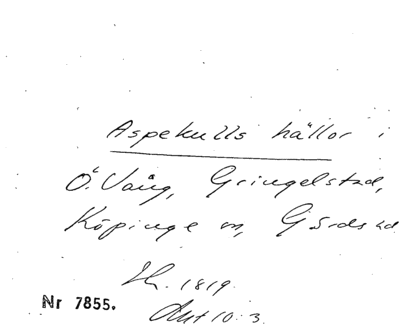 Aspekulls hällor i
Ö. Vång, Gringelstad,
Köpinge m, Gärds hd
1819.
Nr 7855. Akt 10:3